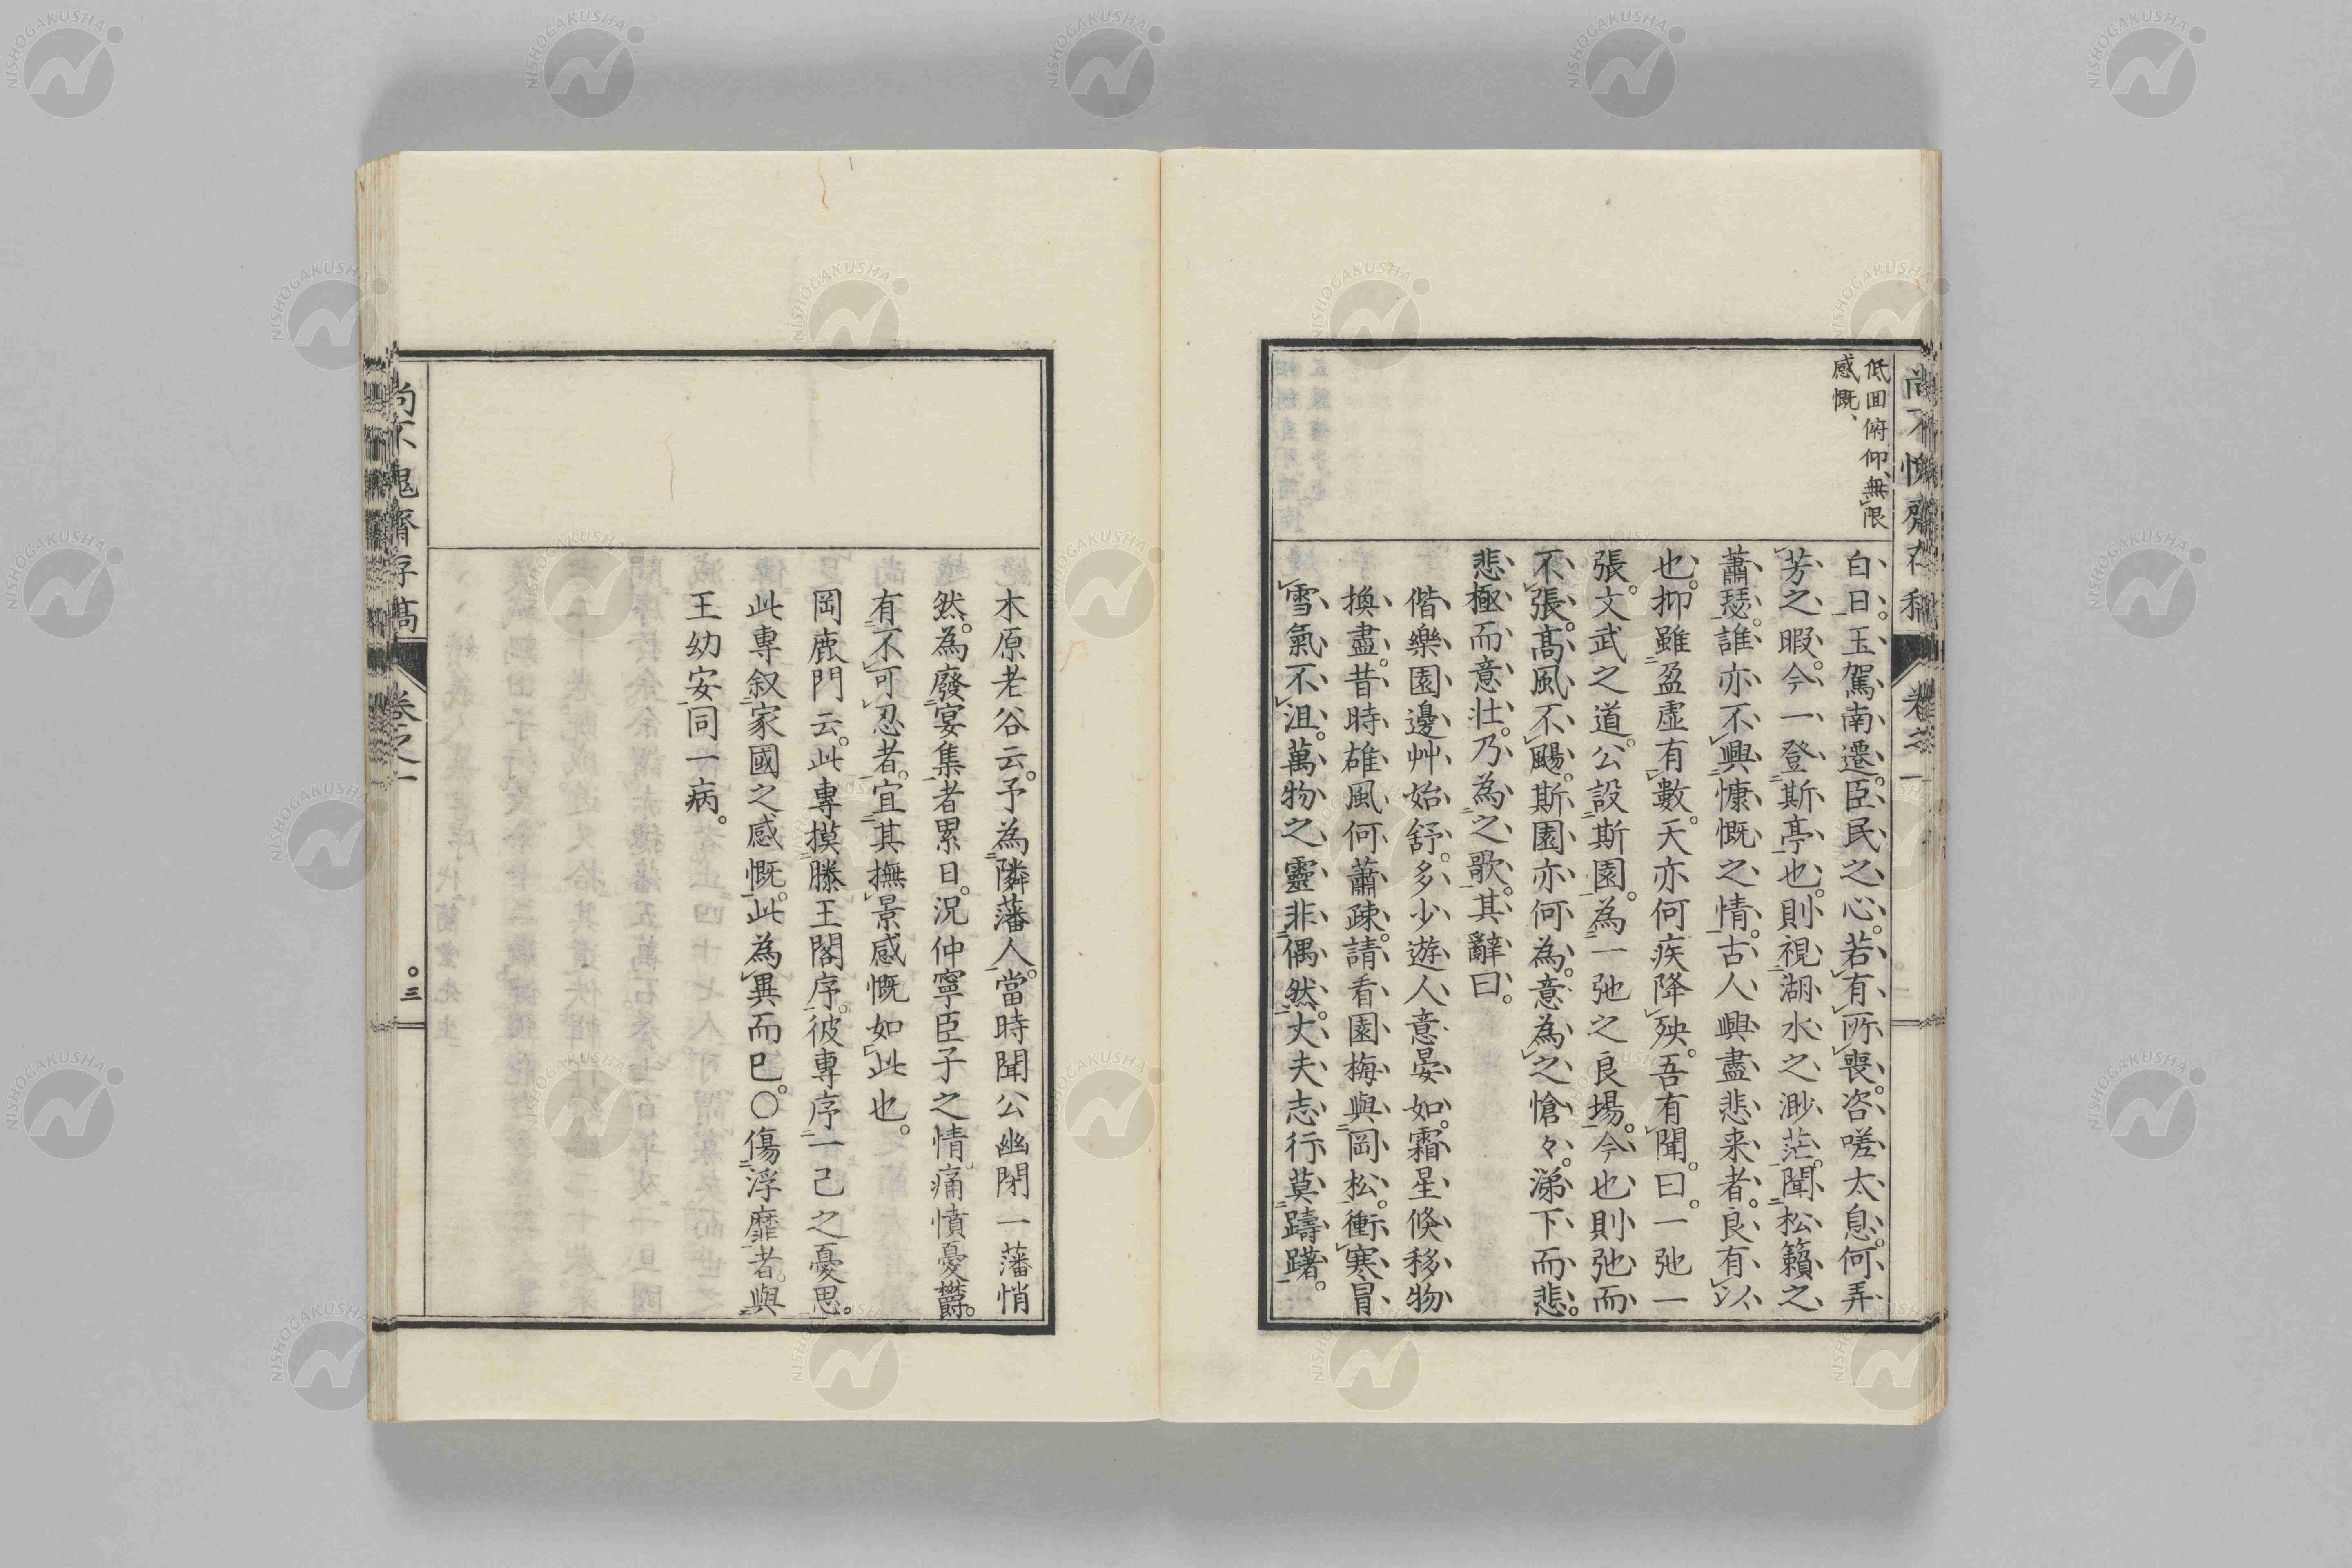 低回俯仰、無限
感慨、
白日。玉駕南遷。臣民之心。若有所喪。咨嗟太息。何弄
芳之暇。今一登斯亭也。則視湖水之渺茫。聞松籟之
蕭瑟。誰亦不興慷慨之情。古人興盡悲来者。良有以
也。抑雖盈虛有數。天亦何疾降殃。吾有聞。曰。一弛一
張。文武之道。公設斯園。為一弛之良場。今也則弛而
不張。高風不颺。斯園亦何為。意為之愴々。涕下而悲。
悲極而意壮。乃為之歌。其辭曰。
偕樂園邊艸始舒。多少遊人意晏如。霜星倏移物
換盡。昔時雄風何蕭疎。請看園梅與岡松。衝寒冒
雪氣不沮。萬物之靈非偶然。丈夫志行莫躊躇。
木原老谷云。予為隣藩人。當時聞公幽閉一藩悄
然。為廢宴集者累日。況仲寧臣子之情痛憤憂欝。
有不可忍者。宜其撫景感慨如此也。
岡鹿門云。此專摸滕王閣序。彼專序一己之憂思。
此專叙家國之感慨。此為異而巳。〇傷浮靡者。與
王幼安同一病。
尚不愧齋存稿
卷之一
三
NISHOGAKUSHA